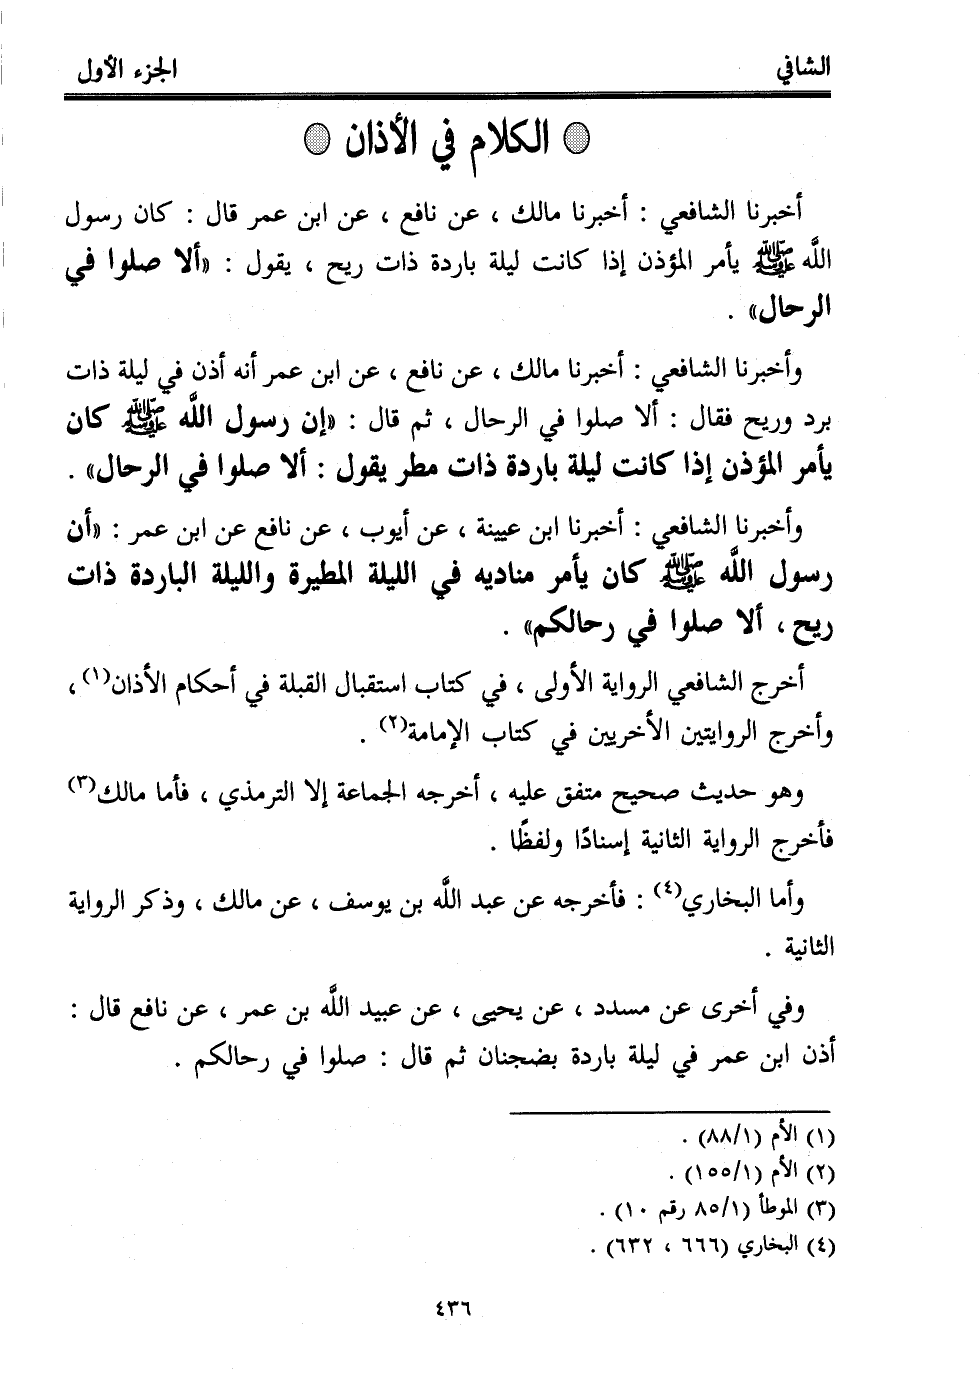 الشافي
الجزء الأول
الكلام في الأذان
أخبرنا الشافعي : أخبرنا مالك ، عن نافع ، عن ابن عمر قال : كان رسول
اللَّه ﷺ يأمر المؤذن إذا كانت ليلة باردة ذات ريح ، يقول : «ألا صلوا في
الرحال» .
وأخبرنا الشافعي : أخبرنا مالك ، عن نافع ، عن ابن عمر أنه أذن في ليلة ذات
برد وريح فقال : ألا صلوا في الرحال ، ثم قال : «إن رسول اللَّه ﷺ كان
يأمر المؤذن إذا كانت ليلة باردة ذات مطر يقول : ألا صلوا في الرحال» .
وأخبرنا الشافعي : أخبرنا ابن عيينة ، عن أيوب ، عن نافع عن ابن عمر : «أن
رسول اللَّه ﷺ كان يأمر مناديه في الليلة المطيرة والليلة الباردة ذات
ريح ، ألا صلوا في رحالكم» .
أخرج الشافعي الرواية الأولى ، في كتاب استقبال القبلة في أحكام الأذان(١) ،
وأخرج الروايتين الأخريين في كتاب الإمامة(٢) .
وهو حديث صحيح متفق عليه ، أخرجه الجماعة إلا الترمذي ، فأما مالك(٣)
فأخرج الرواية الثانية إسنادًا ولفظًا .
وأما البخاري(٤) : فأخرجه عن عبد اللَّه بن يوسف ، عن مالك ، وذكر الرواية
الثانية .
وفي أخرى عن مسدد ، عن يحيى ، عن عبيد اللَّه بن عمر ، عن نافع قال :
أذن ابن عمر في ليلة باردة بضجنان ثم قال : صلوا في رحالكم .
(١) الأم (١/٨٨) .
(٢) الأم (١/١٥٥) .
(٣) الموطأ (١/٨٥ رقم ١٠) .
(٤) البخاري (٦٦٦ ، ٦٣٢) .
٤٣٦